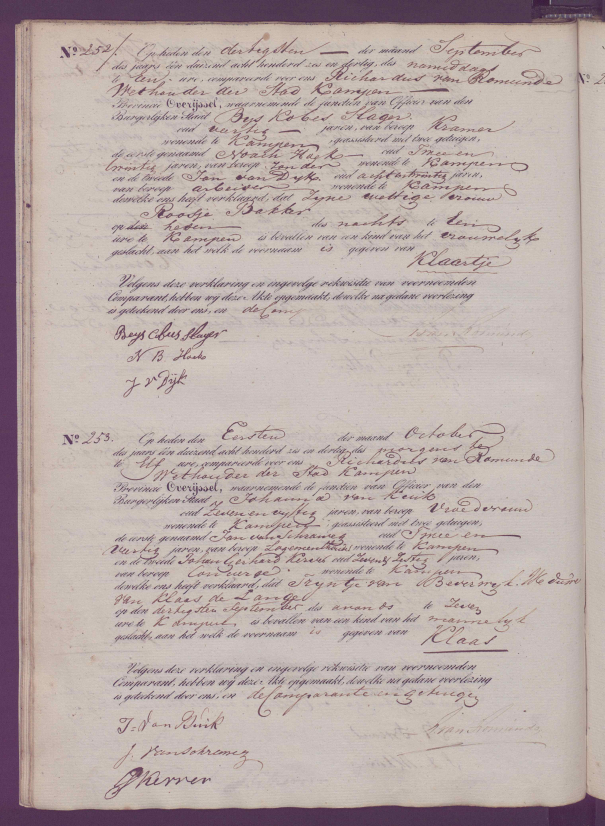 N.º 252. Op heden den dertigsten der maand September
des jaars één duizend acht honderd zes en dertig, des namiddags
te een ure, compareerde voor ons Richardus van Romunde
Wethouder der Stad Kampen
Provincie Overijssel, waarnemende de functien van Officier van den
Burgerlijken Staat
oud veertig jaren, van beroep Kramer
wonende te Kampen, geassisteerd met twee getuigen,
de eerste genaamd oud Twee en
jaren, van beroep wonende te Kampen
en de tweede Jan van Dijk oud acht en twintig jaren,
van beroep arbeider wonende te Kampen
dewelke ons heeft verklaard, dat Zijne wettige vrouw
Roosje Bakker
op heden des nachts te een
ure te Kampen is bevallen van een kind van het vrouwelijk
geslacht, aan het welk de voornaam is gegeven van
Klaartje
Volgens deze verklaring en ingevolge rekwisitie van voornoemden
Comparant, hebben wij deze Akte opgemaakt, dewelke na gedane voorlezing
is geteekend door ons, en de Comp
J v Dijk
N.º 253. Op heden den Eersten der maand October
des jaars één duizend acht honderd zes en dertig, des morgens
te Elf ure, compareerde voor ons Richardus van Romunde
Wethouder der Stad Kampen
Provincie Overijssel, waarnemende de functien van Officier van den
Burgerlijken Staat Johanna van
oud Zeven en vijftig jaren, van beroep Vroedvrouw
wonende te Kampen, geassisteerd met twee getuigen,
de eerste genaamd Jan van oud Twee en
Veertig jaren, van beroep Logementhouder wonende te Kampen
en de tweede Johan Gerhard oud jaren,
van beroep Concierge wonende te
dewelke ons heeft verklaard, dat Trijntje van Beverwijk Weduwe
van Klaas de Lange
op den dertigsten September des avonds te Zeven
ure te Kampen is bevallen van een kind van het mannelijk
geslacht, aan het welk de voornaam is gegeven van
Klaas
Volgens deze verklaring en ingevolge rekwisitie van voornoemden
Comparant, hebben wij deze Akte opgemaakt, dewelke na gedane voorlezing
is geteekend door ons, en de Comparante en getuigen